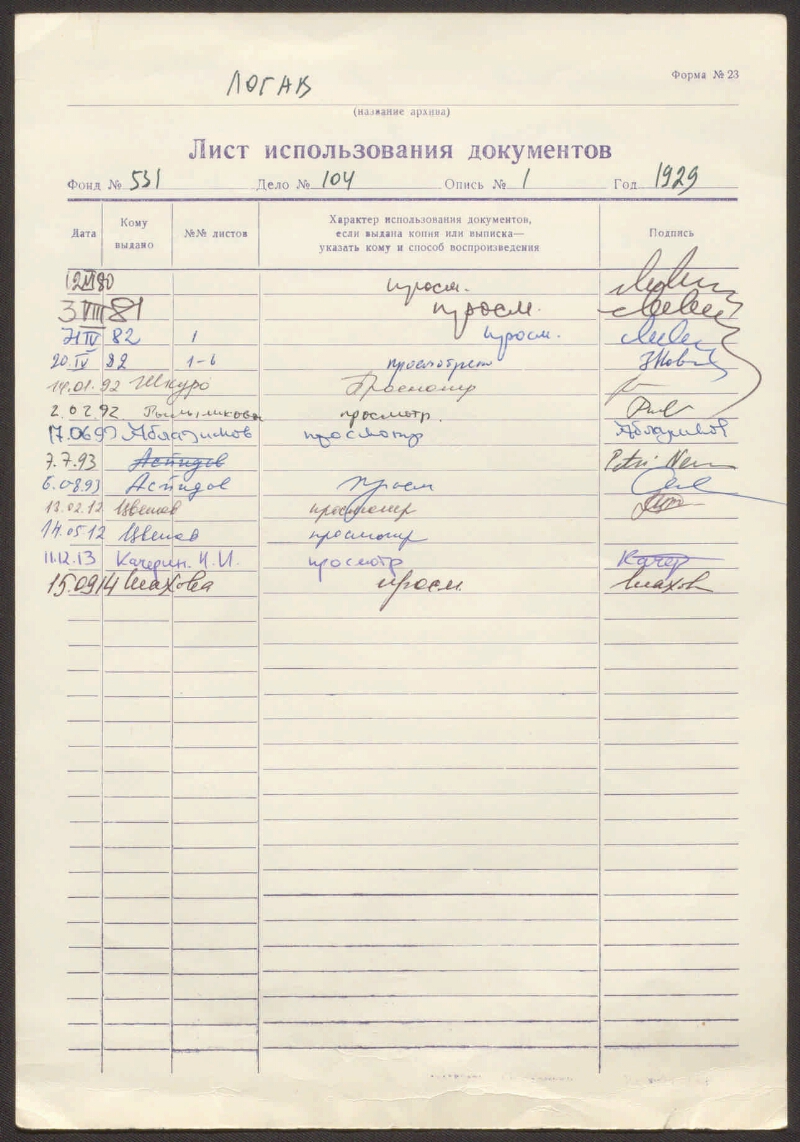 Форма № 23
ЛОГАВ
(название архива)
Лист использования документов
Фонд № 531 Дело № 104 Опись № 1 Год 1929
Дата Кому выдано №№ листов Характер использования документов, если выдана копия или выписка— указать кому и способ воспроизведения Подпись
80 просм.
3 VIII 81 просм.
IV 82 1 просм.
20.IV 82 1-6
14.01.92 Шкуро Просмотр
2.02.92 просмотр.
17.06.93 Аблазимов просмотр
7.7.93 Аспидов Petri
6.08.93 Аспидов просм
13.02.12 Цветов просмотр
14.05.12 Цветов просмотр
11.12.13 Качерин. Н.И. просмотр Качер
15.09.14 Шахова просм. Шахов